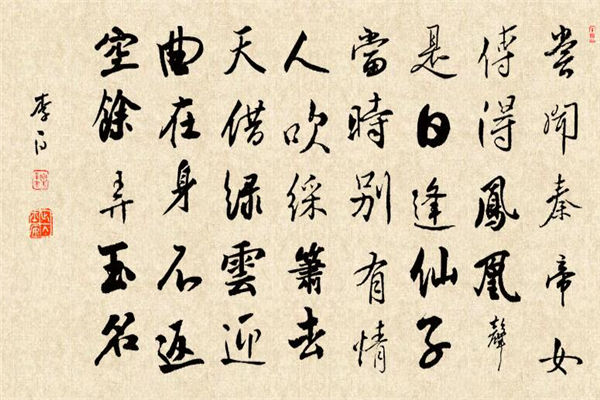 嘗聞秦帝女
傳得鳳凰聲
是日逢仙子
當時別有情
人吹綵簫去
天借緑雲迎
曲在身不返
空餘弄玉名
李白